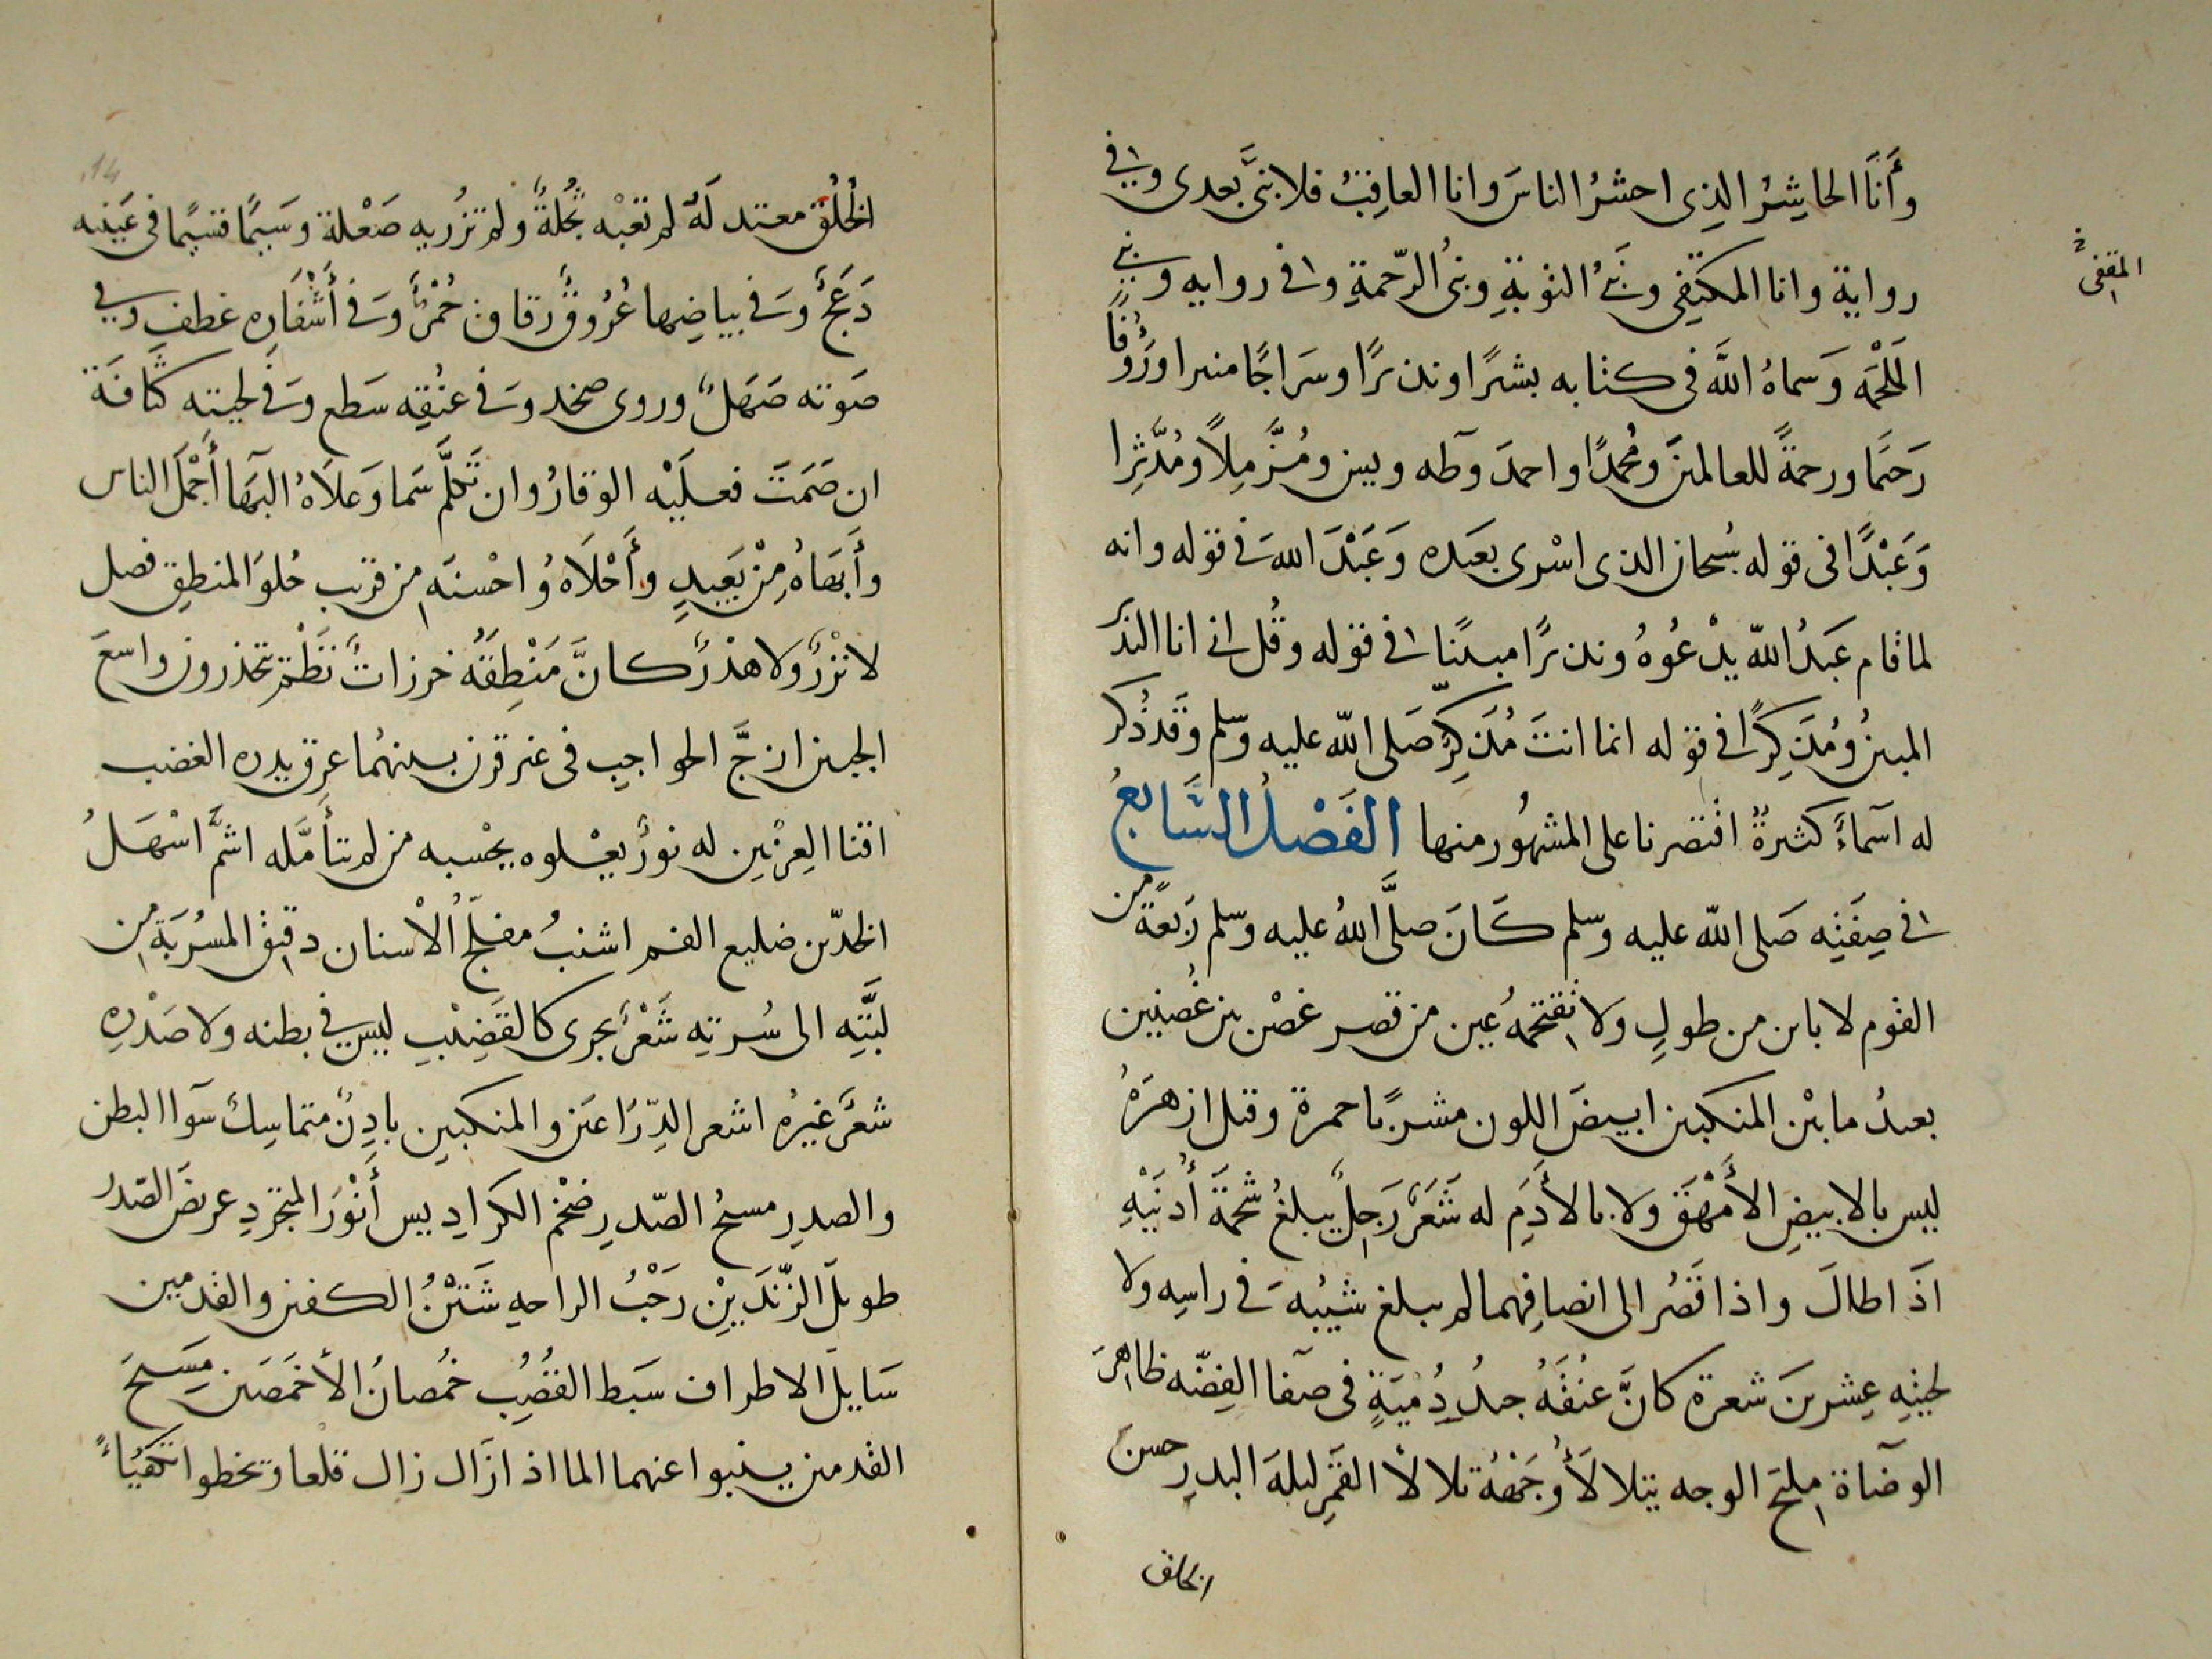 وأَنَا الحاشِرُ الذى احشرُ الناسَ وانا العاقِبُ فلا نبىَّ بعدى وفي
رواية وانا المكتفى ونَبىُ التوبةِ ونبىُ الرّحمةِ وفى روايه ونبي
المقفى
المَلْحَمَه وَسماهُ اللهَ فى كتابه بشيرًا ونذيرًا وسَراجًا منيرا ورَؤُفًا
رَحيمًا ورحمةً للعالمينَ ومُحمدًا واحمدَ وطه ويس ومُزَّمِلاً ومُدَّثِرا
وَعَبْدًا فى قوله سُبحان الذى اسْرى بعَبده وَعَبْدَ اللهَ فى قوله وانه
لما قام عَبدُ اللّه يدْعُوهُ ونذيرًا مبينًا فى قوله وقُل انى انا النذير
المبينُ ومُذَكِرًا فى قوله انما انتَ مُذَكِرٌ صَلى اللّه عليه وسّلم وقَد ذُكر
له اسماءً كثيرةٌ اقتصرنا على المشهُور منها الفَصْلُ السَّابعُ
فى صِفَتِه صَلى اللّه عليه وسّلم كَانَ صلىَّ اللهُ عليه وسّلم رَبعةً من
القوم لا باين من طولٍ ولا تقتحمهُ عين من قصر غصْن بين غُصنين
بعيدُ مابيْن المنكبين ابيضَ اللون مشربًا حمرة وقيل ازهرَهُ
ليس بالابيضِ الأَمْهَق وَلا بالأَدَمِ له شَعَرٌ رَجِلٌ يبلغُ شحمَةَ أُذنَيْهِ
اذَا طالَ واذا قَصُر الى انصافِهما لم يبلغ شيبُه فى راسِه ولا
لحيتِه عِشرينَ شعرة كانَّ عنُقَهُ جيدُ دُميَةٍ فى صفا الفِضّه ظاهرَ
الوضاة مليح الوجه يتلالأُ وَجَههُ تلالأ القَمرِ ليلةَ البدرِ حسن
الخلق
الخلُق معتدلَهُ لم تعَبْه ثُجُلةٌ ولم تزُريه صَعْلة وسَيمًا قسيمًا فى عَينيه
دَعَجٌ وَفى بياضِها عُرُوقٌ رقاق حُمْرٌ وَفى أَشْفَارِه غطف وفي
صَوته صَهَلٌ وروى صخد وَفى عنُقِه سَطع وَفى لحيته كثَافَة
ان صَمَتَ فعليَْه الوقارُ وان تَكلَّم سَما وَعلاَهُ البَهَا أَجْمَلَ الناس
وأَبهاهُ مِنْ بَعَيدٍ وأَحْلاَهُ واحْسنَه من قريب حُلوَ المنطِقِ فصل
لا نزْرٌ ولا هذْرٌ كانَّ مَنْطِقَهُ خرزاتُ نَظْم يتحَدَّرون واسعَ
الجبين ازجَّ الحواجِب فى غير قرن بينهُما عِرق يدره الغضب
اقنا العِرْنين له نورٌ يعْلوه يحْسبه من لم يتأَمَّله اشمَّ اسْهَلُ
الخدّين ضليع الفم اشنبُ مفلّجُ الأسْنان دقيقُ المسرُبَة من
لبَّتِه الى سُرتِه شَعْرٌ يجرى كالقَضِيبِ ليس فى بطنه ولا صَدْرِهِ
شعرٌ غيرُه اشعر الذِّراعين والمنكبين بادِنٌ متماسِكٌ سَوا البطن
والصدرِ مسيحُ الصّدرِ ضخْم الكرادِيس أَنْوَرَ المتجرّدِ عريضَ الصّدر
طويلَ الزّندَيْنِ رَحْبُ الراحهِ شَثْنُ الكفين والقدمين
سَايلَ الاطراف سبَط القُصُبِ خُمصانُ الأخمَصَين مسيحَ
القدمين ينبوا عنهما الما اذا زال زال قلعا ويخطوا تكفيُاءً